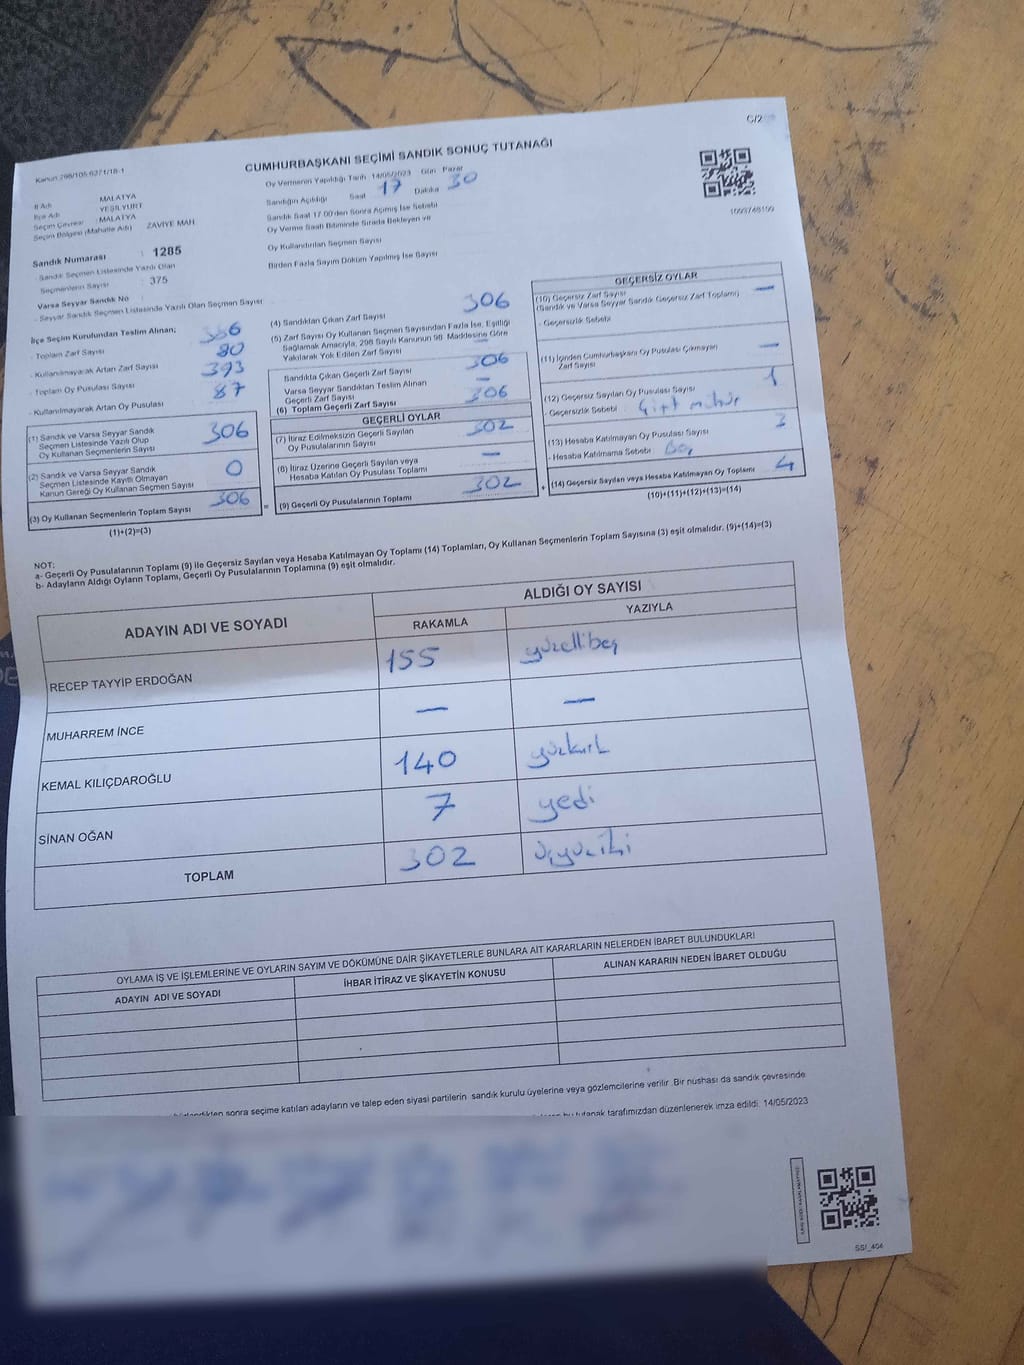 C/2
CUMHURBAŞKANI SEÇİMİ SANDIK SONUÇ TUTANAĞI
Kanun:298/105-6271/18-1
Oy Vermenin Yapıldığı Tarih 14/05/2023 Gün Pazar
Sandığın Açıldığı Saat 17 Dakika 30
Sandık Saat 17.00'den Sonra Açılmış İse Sebebi
Oy Verme Saati Bitiminde Sırada Bekleyen ve
Oy Kullandırılan Seçmen Sayısı
Birden Fazla Sayım Döküm Yapılmış İse Sayısı
İl Adı MALATYA
İlçe Adı YEŞİLYURT
Seçim Çevresi : MALATYA
Seçim Bölgesi (Mahalle Adı) ZAVİYE MAH.
Sandık Numarası : 1285
- Sandık Seçmen Listesinde Yazılı Olan
Seçmenlerin Sayısı : 375
Varsa Seyyar Sandık No :
- Seyyar Sandık Seçmen Listesinde Yazılı Olan Seçmen Sayısı
İlçe Seçim Kurulundan Teslim Alınan;
- Toplam Zarf Sayısı
- Kullanılmayarak Artan Zarf Sayısı 80
- Toplam Oy Pusulası Sayısı 393
- Kullanılmayarak Artan Oy Pusulası 87
(1) Sandık ve Varsa Seyyar Sandık
Seçmen Listesinde Yazılı Olup
Oy Kullanan Seçmenlerin Sayısı 306
(2) Sandık ve Varsa Seyyar Sandık
Seçmen Listesinde Kayıtlı Olmayan
Kanun Gereği Oy Kullanan Seçmen Sayısı 0
(3) Oy Kullanan Seçmenlerin Toplam Sayısı 306
(1)+(2)=(3)
(4) Sandıktan Çıkan Zarf Sayısı 306
(5) Zarf Sayısı Oy Kullanan Seçmen Sayısından Fazla İse, Eşitliği
Sağlamak Amacıyla, 298 Sayılı Kanunun 98. Maddesine Göre
Yakılarak Yok Edilen Zarf Sayısı —
Sandıkta Çıkan Geçerli Zarf Sayısı 306
Varsa Seyyar Sandıktan Teslim Alınan
Geçerli Zarf Sayısı —
(6) Toplam Geçerli Zarf Sayısı 306
GEÇERLİ OYLAR
(7) İtiraz Edilmeksizin Geçerli Sayılan
Oy Pusulalarının Sayısı 302
(8) İtiraz Üzerine Geçerli Sayılan veya
Hesaba Katılan Oy Pusulası Toplamı —
= (9) Geçerli Oy Pusulalarının Toplamı 302 +
GEÇERSİZ OYLAR
(10) Geçersiz Zarf Sayısı
(Sandık ve Varsa Seyyar Sandık Geçersiz Zarf Toplamı) —
- Geçersizlik Sebebi
(11) İçinden Cumhurbaşkanı Oy Pusulası Çıkmayan
Zarf Sayısı —
(12) Geçersiz Sayılan Oy Pusulası Sayısı 1
- Geçersizlik Sebebi Çift mühür
(13) Hesaba Katılmayan Oy Pusulası Sayısı 3
- Hesaba Katılmama Sebebi Boş
(14) Geçersiz Sayılan veya Hesaba Katılmayan Oy Toplamı 4
(10)+(11)+(12)+(13)=(14)
NOT:
a- Geçerli Oy Pusulalarının Toplamı (9) ile Geçersiz Sayılan veya Hesaba Katılmayan Oy Toplamı (14) Toplamları, Oy Kullanan Seçmenlerin Toplam Sayısına (3) eşit olmalıdır. (9)+(14)=(3)
b- Adayların Aldığı Oyların Toplamı, Geçerli Oy Pusulalarının Toplamına (9) eşit olmalıdır.
ADAYIN ADI VE SOYADI
ALDIĞI OY SAYISI
RAKAMLA YAZIYLA
RECEP TAYYİP ERDOĞAN 155 yüzellibeş
MUHARREM İNCE — —
KEMAL KILIÇDAROĞLU 140 yüzkırk
SİNAN OĞAN 7 yedi
TOPLAM 302 üçyüziki
OYLAMA İŞ VE İŞLEMLERİNE VE OYLARIN SAYIM VE DÖKÜMÜNE DAİR ŞİKAYETLERLE BUNLARA AİT KARARLARIN NELERDEN İBARET BULUNDUKLARI
ADAYIN ADI VE SOYADI İHBAR İTİRAZ VE ŞİKAYETİN KONUSU ALINAN KARARIN NEDEN İBARET OLDUĞU
sonra seçime katılan adayların ve talep eden siyasi partilerin sandık kurulu üyelerine veya gözlemcilerine verilir. Bir nüshası da sandık çevresinde
bu tutanak tarafımızdan düzenlenerek imza edildi. 14/05/2023